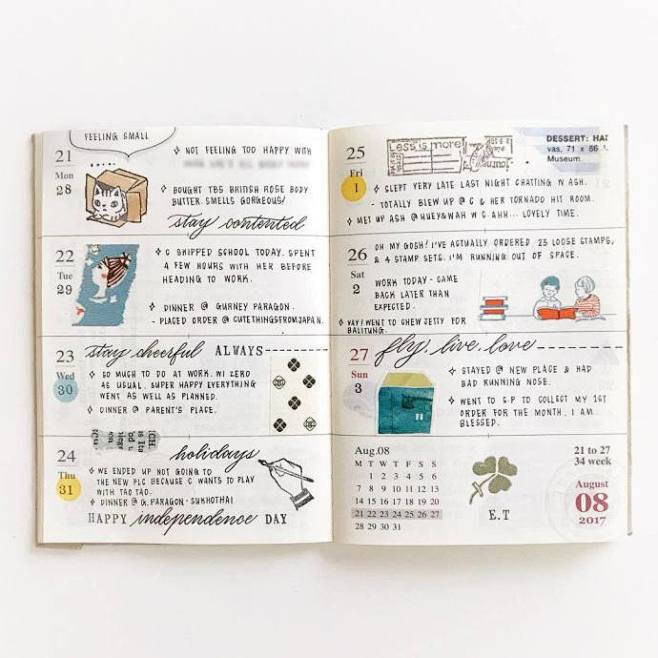 FEELING SMALL
21
Mon
28
NOT FEELING TOO HAPPY WITH
BOUGHT TBS BRITISH ROSE BODY
BUTTER. SMELLS GORGEOUS!
stay contented
22
Tue
29
C SKIPPED SCHOOL TODAY. SPENT
A FEW HOURS WITH HER BEFORE
HEADING TO WORK.
DINNER @ GURNEY PARAGON.
- PLACED ORDER @ CUTETHINGSFROMJAPAN.
stay cheerful ALWAYS
23
Wed
30
SO MUCH TO DO AT WORK. W/ ZERO
AS USUAL. SUPER HAPPY EVERYTHING
WENT AS WELL AS PLANNED.
DINNER @ PARENT'S PLACE.
24
Thu
31
holidays
WE ENDED UP NOT GOING TO
THE NEW PLC BECAUSE C WANTS TO PLAY
WITH TAO TAO.
DINNER @ G. PARAGON - SUKHOTHAI
HAPPY independence DAY
25
Fri
1
Less is more
DESSERT: HAR
vas, 71 x 86
Museum.
SLEPT VERY LATE LAST NIGHT CHATTING W ASH.
- TOTALLY BLEW UP @ C & HER TORNADO HIT ROOM.
MET UP ASH @ HUEY&WAH W C. AHH... LOVELY TIME.
26
Sat
2
OH MY GOSH! I'VE ACTUALLY ORDERED 25 LOOSE STAMPS,
& 4 STAMP SETS. I'M RUNNING OUT OF SPACE.
WORK TODAY - CAME
BACK LATER THAN
EXPECTED.
YAY! WENT TO CHEW JETTY FOR
27
Sun
3
fly. live. love
STAYED @ NEW PLACE & HAD
BAD RUNNING NOSE.
WENT TO G.P TO COLLECT MY 1ST
ORDER FOR THE MONTH. I AM
BLESSED.
Aug.08
M T W T F S S
1 2 3 4 5 6
7 8 9 10 11 12 13
14 15 16 17 18 19 20
21 22 23 24 25 26 27
28 29 30 31
E.T
21 to 27
34 week
August
08
2017